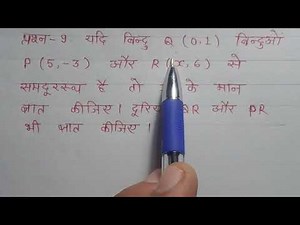 प्रश्न-9 यदि बिन्दु Q (0,1) बिन्दुओं
P (5,-3) और R (x,6) से
समदूरस्थ है तो के मान
ज्ञात कीजिए। दूरियाँ QR और PR
भी ज्ञात कीजिए।